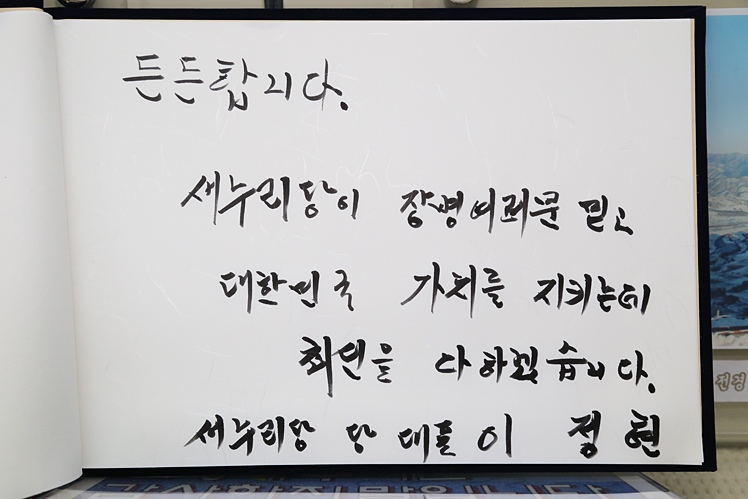 든든합니다.
새누리당이 장병여러분 믿고
대한민국 가치를 지키는데
최선을 다하겠습니다.
새누리당 당대표 이 정 현
전경